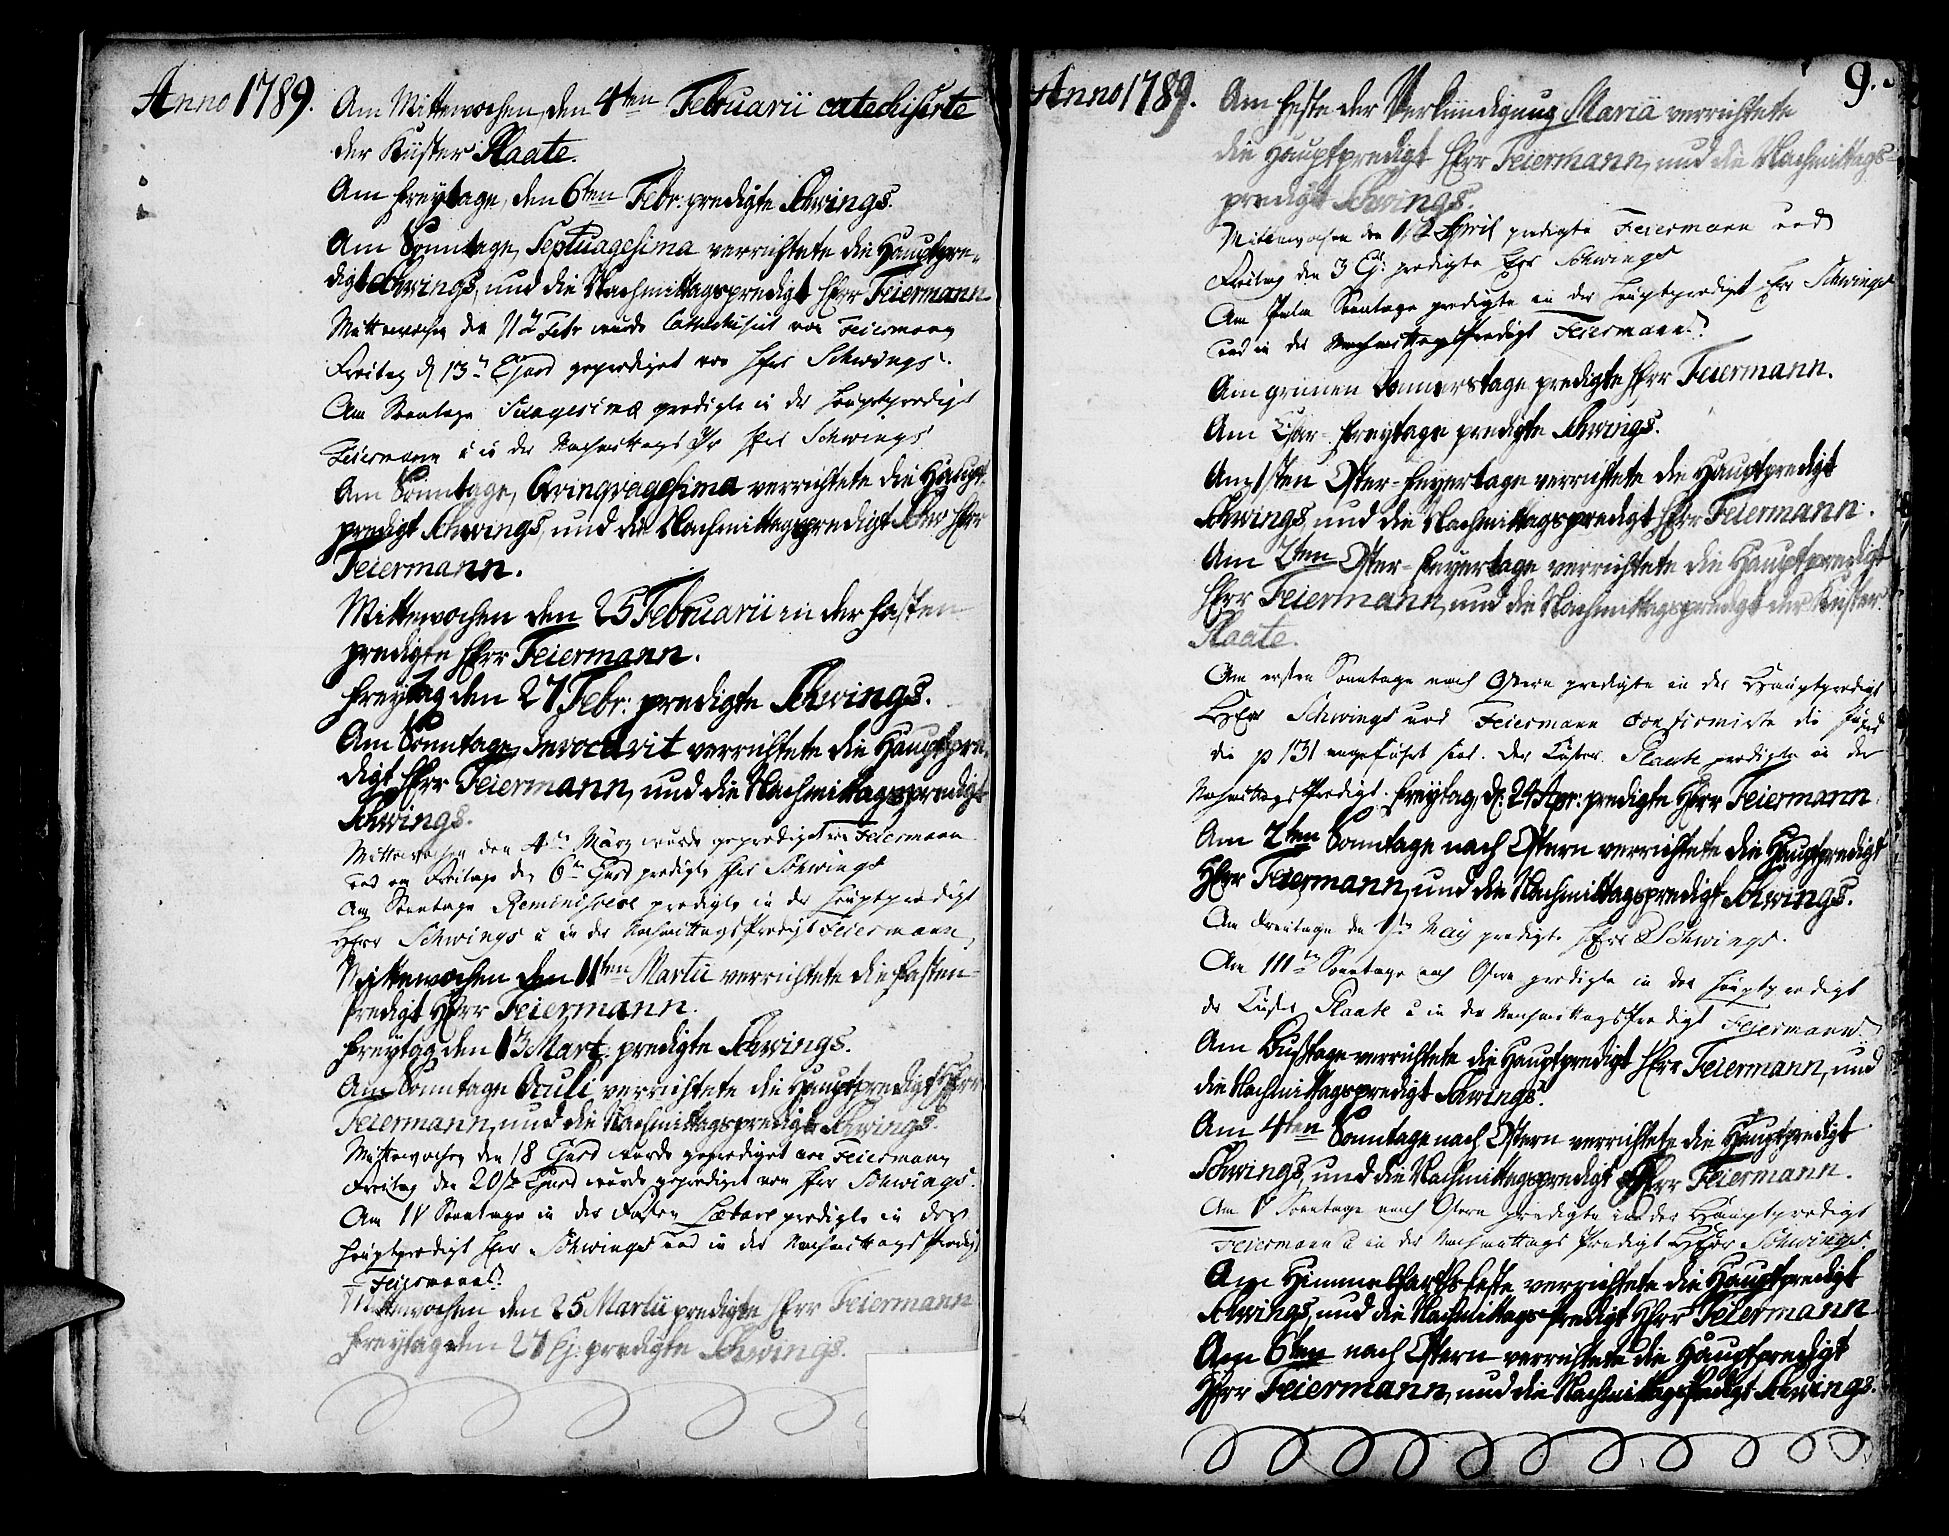 Anno 1789.
Am Mittewochen, den 4ten Februarii catechisirte
der Küster Plaate.
Am Freytage, den 6ten Febr: predigte Schwings.
Am Sonntage, Septuagesima verrichtete die Hauptpre-
digt Schwings, und die Nachmittagspredigt Herr Feiermann
Mittewochen den 11ten Febr wurde Catechisirt von Feiermann
Freitag d 13ten Ejusd geprediget von Herr Schwings.
Am Sonntage Sexagesimæ predigte in der Hauptpredigt
Feiermann u in der Nachmittags Pr Herr Schwings
Am Sonntage, Qvinqvagesima verrichtete die Haupt-
predigt Schwings, und die Nachmittagspredigt Herr
Feiermann.
Mittewochen den 25 Februarii in der Fasten
predigte Herr Feiermann.
Freytag den 27 Febr: predigte Schwings.
Am Sonntage, Invocavit verrichtete die Hauptpre-
digt Herr Feiermann, und die Nachmittagspredigt
Schwings.
Mittewochen den 4ten März wurde geprediget von Feiermann
und am Freitage den 6ten Ejusd predigte Herr Schwings
Am Sonntage Reminiscere predigte in der Hauptpredigt
Herr Schwings u in der Nachmittags Predigt Feiermann
Mittewochen den 11ten Martii verrichtete die Fasten-
Predigt Herr Feiermann.
Freytag den 13 Mart: predigte Schwings.
Am Sonntage Oculi verrichtete die Hauptpredigt Herr
Feiermann, und die Nachmittagspredigt Schwings.
Mittewochen den 18 Ejusd wurde geprediget von Feiermann
Freitag den 20ten Ejusd wurde geprediget von Herr Schwings.
Am IV Sonntage in der Fasten Lætare predigte in der
Hauptpredigt Herr Schwings und in der Nachmittags Predigt
Feiermann.
Mittewochen den 25 Martii predigte Herr Feiermann
Freytag den 27 Ej: predigte Schwings.
Anno 1789.
9.
Am Feste der Verkündigung Mariä verrichtete
die Hauptpredigt Herr Feiermann, und die Nachmittags-
predigt Schwings.
Mittewochen den April predigte Feiermann und
Freitag den 3 Ej: predigte Herr Schwings
Am Palm Sonntage predigte in der Hauptpredigt Herr Schwings
und in der Nachmittags Predigt Feiermann.
Am grünen Donnerstage predigte Herr Feiermann.
Am Char-Freytage predigte Schwings.
Am 1sten Oster-Feyertage verrichtete die Hauptpredigt
Schwings, und die Nachmittagspredigt Herr Feiermann.
Am 2ten Oster-Feyertage verrichtete die Hauptpredigt
Herr Feiermann, und die Nachmittagspredigt der Küster
Plaate.
Am ersten Sonntage nach Ostern predigte in der Hauptpredigt
Herr Schwings und Feiermann Confirmirte die
die p 131 angeführt sind. Der Küster Plaate predigte in der
Nachmittags Predigt. Freytag, d: 24 Apr: predigte Herr Feiermann.
Am 2ten Sonntage nach Ostern verrichtete die Hauptpredigt
Herr Feiermann, und die Nachmittagspredigt Schwings.
Am Freitage den 1ten May predigte Herr Schwings.
Am IIIten Sonntage nach Ostern predigte in der Hauptpredigt
der Küster Plaate u in der Nachmittags Predigt Feiermann.
Am Bußtage verrichtete die Hauptpredigt Herr Feiermann, und
die Nachmittagspredigt Schwings.
Am 4ten Sonntage nach Ostern verrichtete die Hauptpredigt
Schwings, und die Nachmittagspredigt Herr Feiermann.
Am V Sonntage nach Ostern predigte in der Hauptpredigt
Feiermann u in der Nachmittags Predigt Herr Schwings.
Am Himmelfarthsfeste verrichtete die Hauptpredigt
Schwings, und die Nachmittags Predigt Herr Feiermann
Am 6ten nach Ostern verrichtete die Hauptpredigt
Herr Feiermann, und die Nachmittags Predigt Schwings.